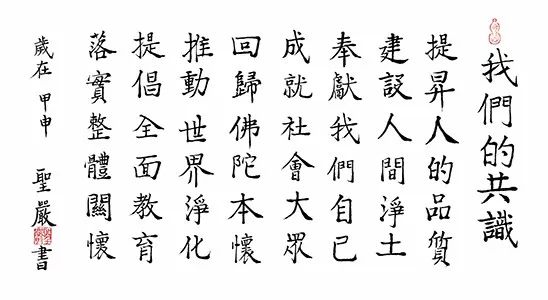 我們的共識
提昇人的品質
建設人間淨土
奉獻我們自己
成就社會大眾
回歸佛陀本懷
推動世界淨化
提倡全面教育
落實整體關懷
歲在甲申 聖嚴書